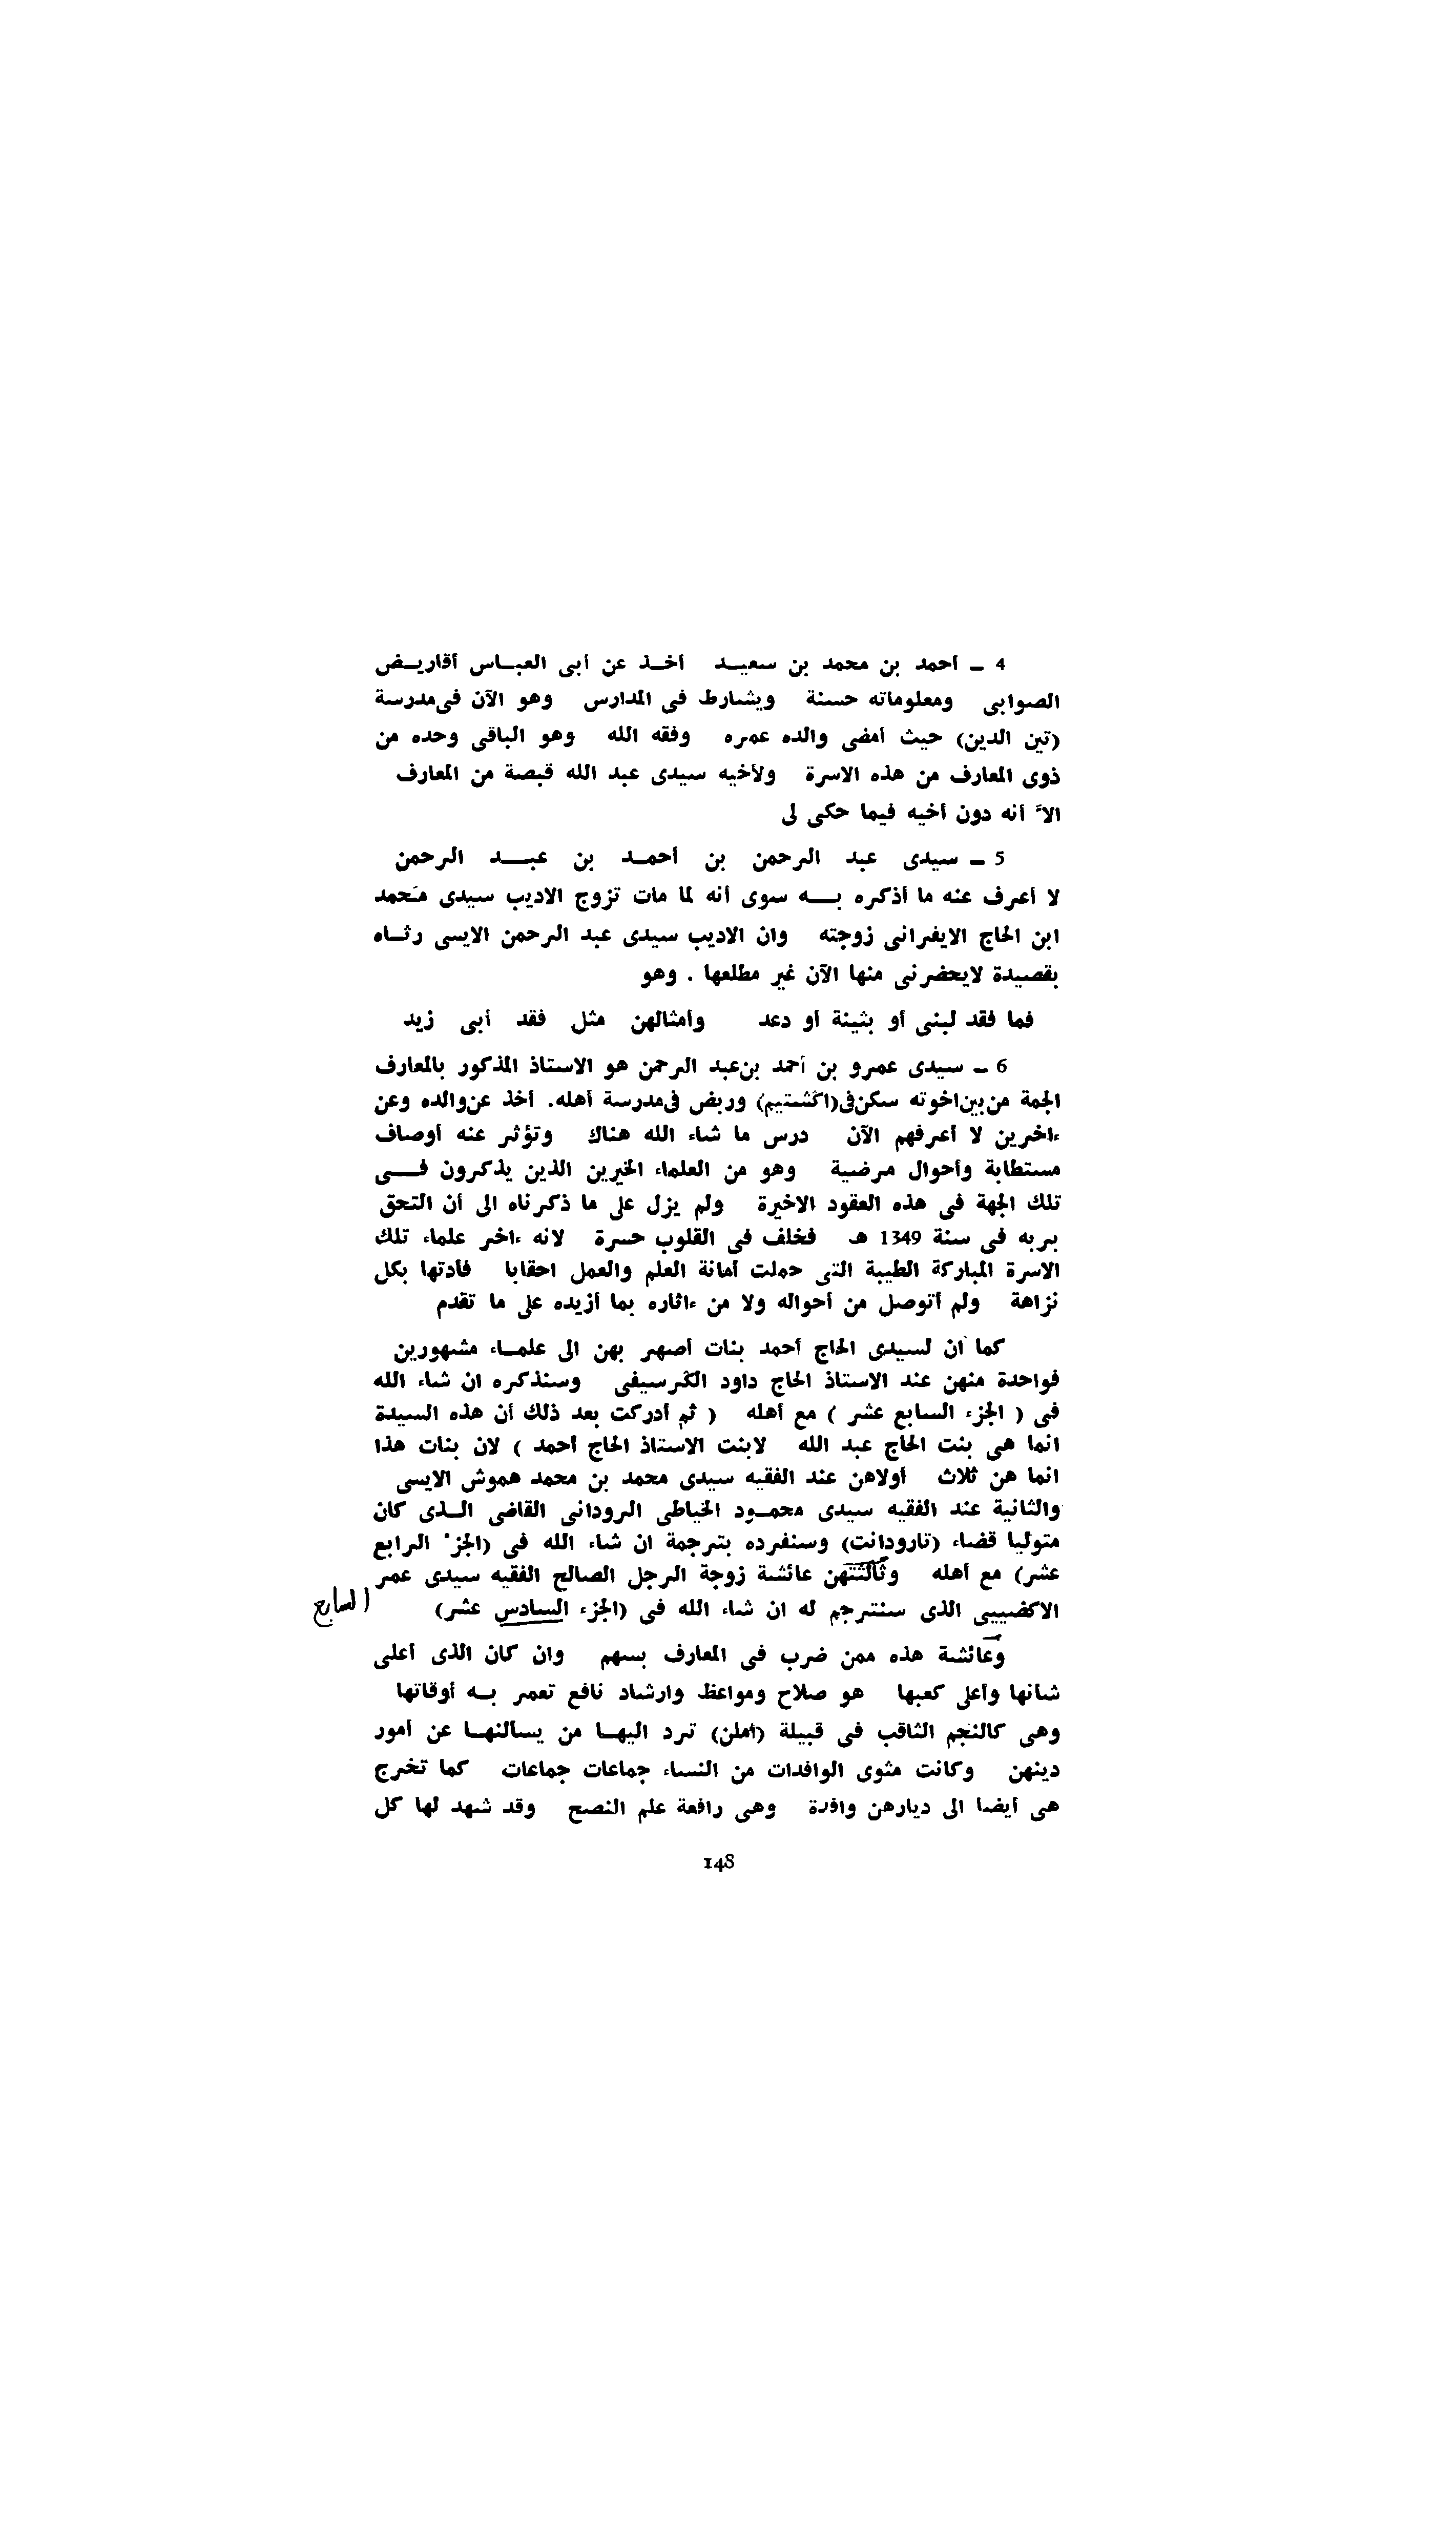 4 ــ أحمد بن محمد بن سعيــد أخــذ عن أبى العبــاس أقاريــض
الصوابى ومعلوماته حسنة ويشارط فى المدارس وهو الآن فى مدرسة
(تين الدين) حيث أمضى والده عمره وفقه الله وهو الباقى وحده من
ذوى المعارف من هذه الاسرة ولأخيه سيدى عبد الله قبصة من المعارف
الاَّ أنه دون أخيه فيما حكى لى
5 ــ سيدى عبد الرحمن بن أحمــد بن عبــــد الرحمن
لا أعرف عنه ما أذكره بـــه سوى أنه لما مات تزوج الاديب سيدى مَحمد
ابن الحاج الايفرانى زوجته وان الاديب سيدى عبد الرحمن الايسى رثــاه
بقصيدة لايحضرنى منها الآن غير مطلعها . وهو
فما فقد لبنى أو بثينة أو دعد وأمثالهن مثل فقد أبى زيد
6 ــ سيدى عمرو بن أحمد بن عبد الرحمن هو الاستاذ المذكور بالمعارف
الجمة من بين اخوته سكن فى (اكشتيم) وربض فى مدرسة أهله. أخذ عن والده وعن
ءاخرين لا أعرفهم الآن درس ما شاء الله هناك وتؤثر عنه أوصاف
مستطابة وأحوال مرضية وهو من العلماء الخيرين الذين يذكرون فـــى
تلك الجهة فى هذه العقود الاخيرة ولم يزل على ما ذكرناه الى أن التحق
بربه فى سنة 1349 هـ فخلف فى القلوب حسرة لانه ءاخر علماء تلك
الاسرة المباركة الطيبة التى حملت أمانة العلم والعمل احقابا فأدتها بكل
نزاهة ولم أتوصل من أحواله ولا من ءاثاره بما أزيده على ما تقدم
كما أن لسيدى الحاج أحمد بنات أصهر بهن الى علمــاء مشهورين
فواحدة منهن عند الاستاذ الحاج داود الكرسيفى وسنذكره ان شاء الله
فى ( الجزء السابع عشر ) مع أهله ( ثم أدركت بعد ذلك أن هذه السيدة
انما هى بنت الحاج عبد الله لابنت الاستاذ الحاج أحمد ) لان بنات هذا
انما هن ثلاث أولاهن عند الفقيه سيدى محمد بن محمد هموش الايسى
والثانية عند الفقيه سيدى محمــود الخياطى الرودانى القاضى الــذى كان
متوليا قضاء (تارودانت) وسنفرده بترجمة ان شاء الله فى (الجزء الرابع
عشر) مع أهله وثالثتهن عائشة زوجة الرجل الصالح الفقيه سيدى عمر
الاكضييى الذى سنترجم له ان شاء الله فى (الجزء السادس عشر) السابع
وعائشة هذه ممن ضرب فى المعارف بسهم وان كان الذى أعلى
شانها وأعلى كعبها هو صلاح ومواعظ وارشاد نافع تعمر بــه أوقاتها
وهى كالنجم الثاقب فى قبيلة (أملن) ترد اليهــا من يسألنهــا عن أمور
دينهن وكانت مثوى الوافدات من النساء جماعات جماعات كما تخرج
هى أيضا الى ديارهن وافدة وهى رافعة علم النصح وقد شهد لها كل
148